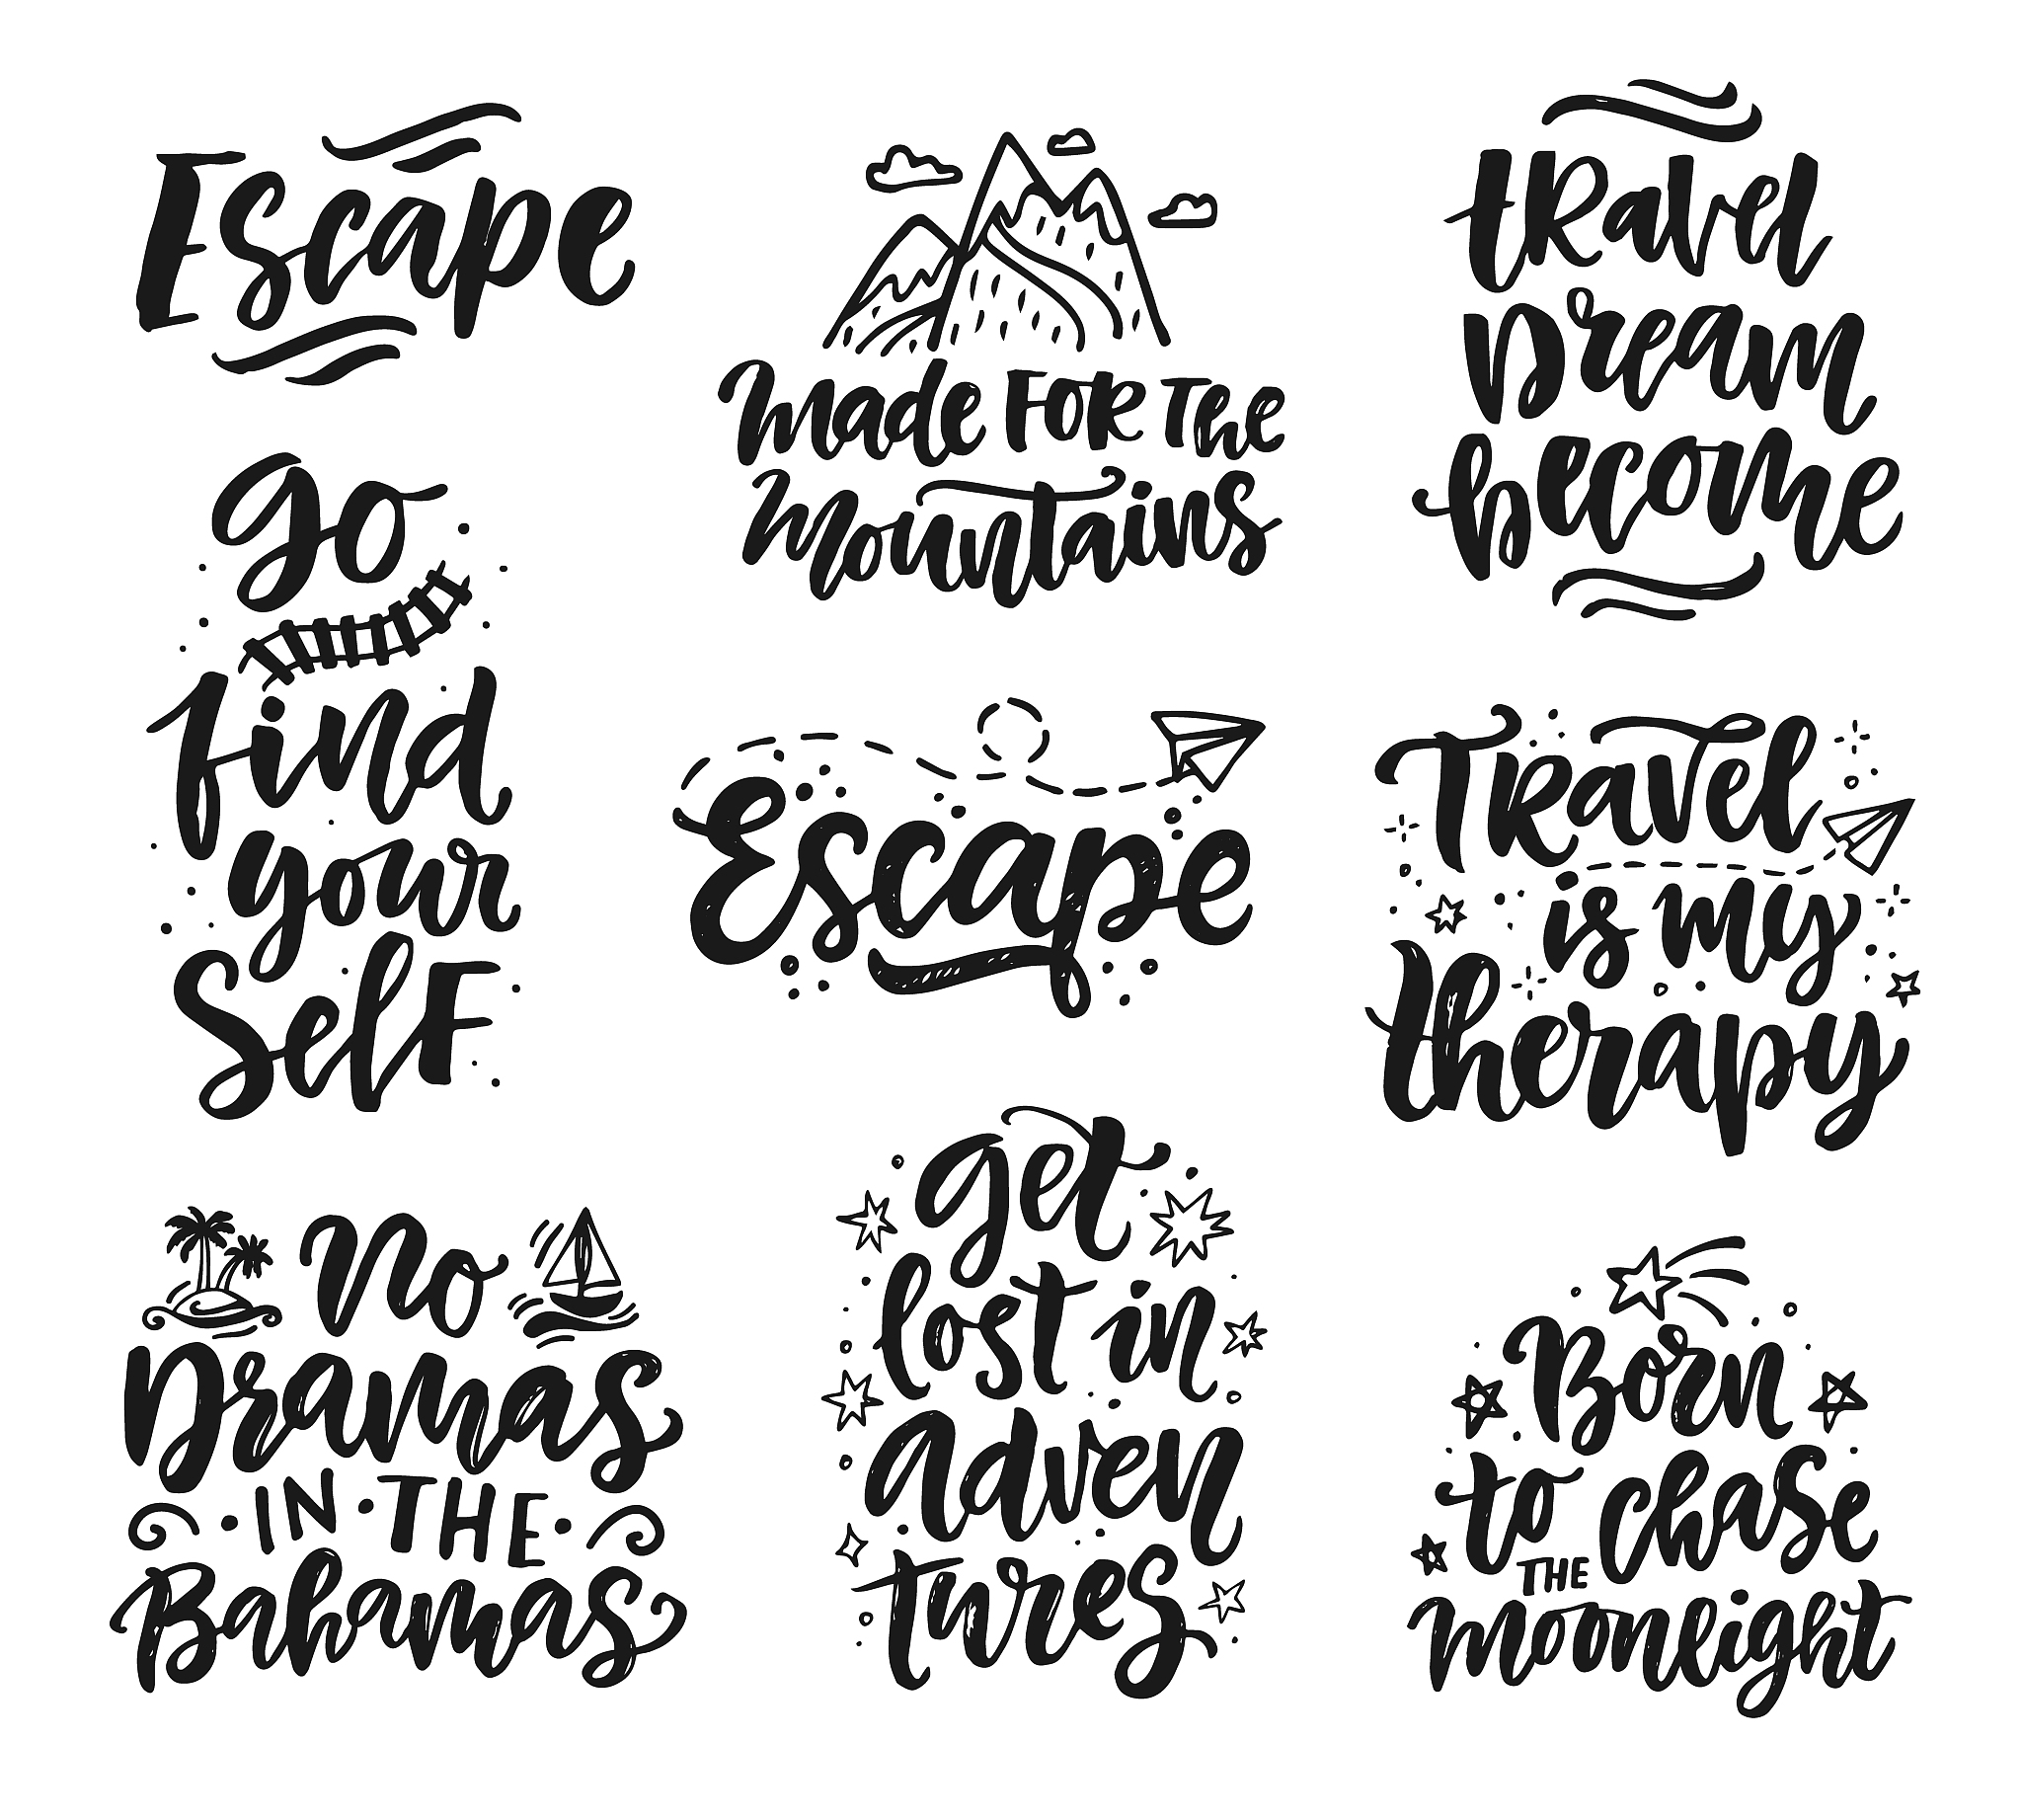 Escape
Made FOR The
Mountains
tRavel
Dream
become
go
find
your
SelF
Escape
TRavel
is my
therapy
No
Dramas
IN · THE
Bahamas
get
lost in
adven
tures
Born
to chase
THE
moonlight